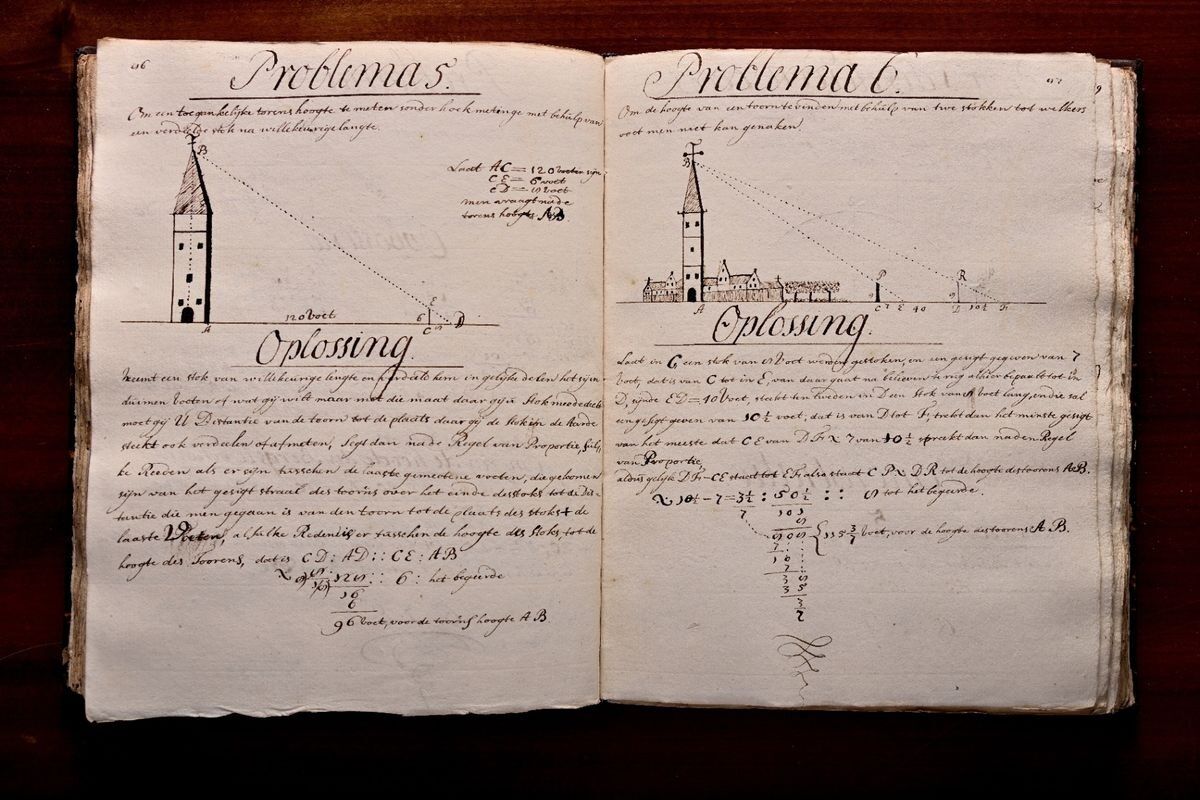 96
Problema 5.
Om een toegankelijke torens hoogte te meten sonder hoek metinge met behulp van
een verdeelde stok na willekeurige langte.
B
Laat AC = 120 voeten sijn
CE = 6 voet
CD = 5 voet
men vraagt na de
torens hoogte AB.
E
120 voet
6
A
C 5 D
Oplossing.
Neemt een stok van willekeurige lengte en verdeelt hem in gelijke delen het sijn
duimen voeten of wat gij wilt maar met die maat daar gij u stok mede deelt
moet gij U Distantie van de toorn tot de plaats daar gij de stok in de Aarde
steekt ook verdeelen of afmeten, segt dan na de Regel van Proportie, sul,
ke Reeden als er sijn tusschen de laaste gemetene voeten, die gekomen
sijn van het gesigt straal des toorns over het einde des stoks tot de Dis-
tantie die men gegaan is van den toorn tot de plaats des stoks + de
laaste voeten, al sulke Reden is er tusschen de hoogte des stoks tot de
hoogte des Toorens, dat is CD : AD :: CE : AB
5 : 125 :: 6 : het begeerde
16
6
96 voet, voor de toorns hoogte AB
97
Problema 6.
Om de hoogte van een toorn te vinden met behulp van twe stokken tot welkers
voet men niet kan genaken.
B
P
R
5
A
C 7 E 40
D 10½ F
Oplossing.
Laat in C een stok van 5 voet werden gestoken, en een gesigt gegeven van 7
voet, dat is van C tot in E, van daar gaat na believen te rug alhier bepaalt tot in
D, sijnde ED = 40 voet, steekt ten tweden in D een stok van 5 voet lang, en die sal
een gesigt geven van 10½ voet, dat is van D tot F, trekt dan het minste gesigt
van het meeste dat CE van DF × 7 van 10½ spreekt dan na den Regel
van Proportie,
aldus gelijk DF-CE staat tot EF also staat CP × DR tot de hoogte des toorens AB.
× 10½ - 7 = 3½ : 50½ :: 5 tot het begeerde.
7
101
5
505 { 72 1/7 voet, voor de hoogte des toorens AB.